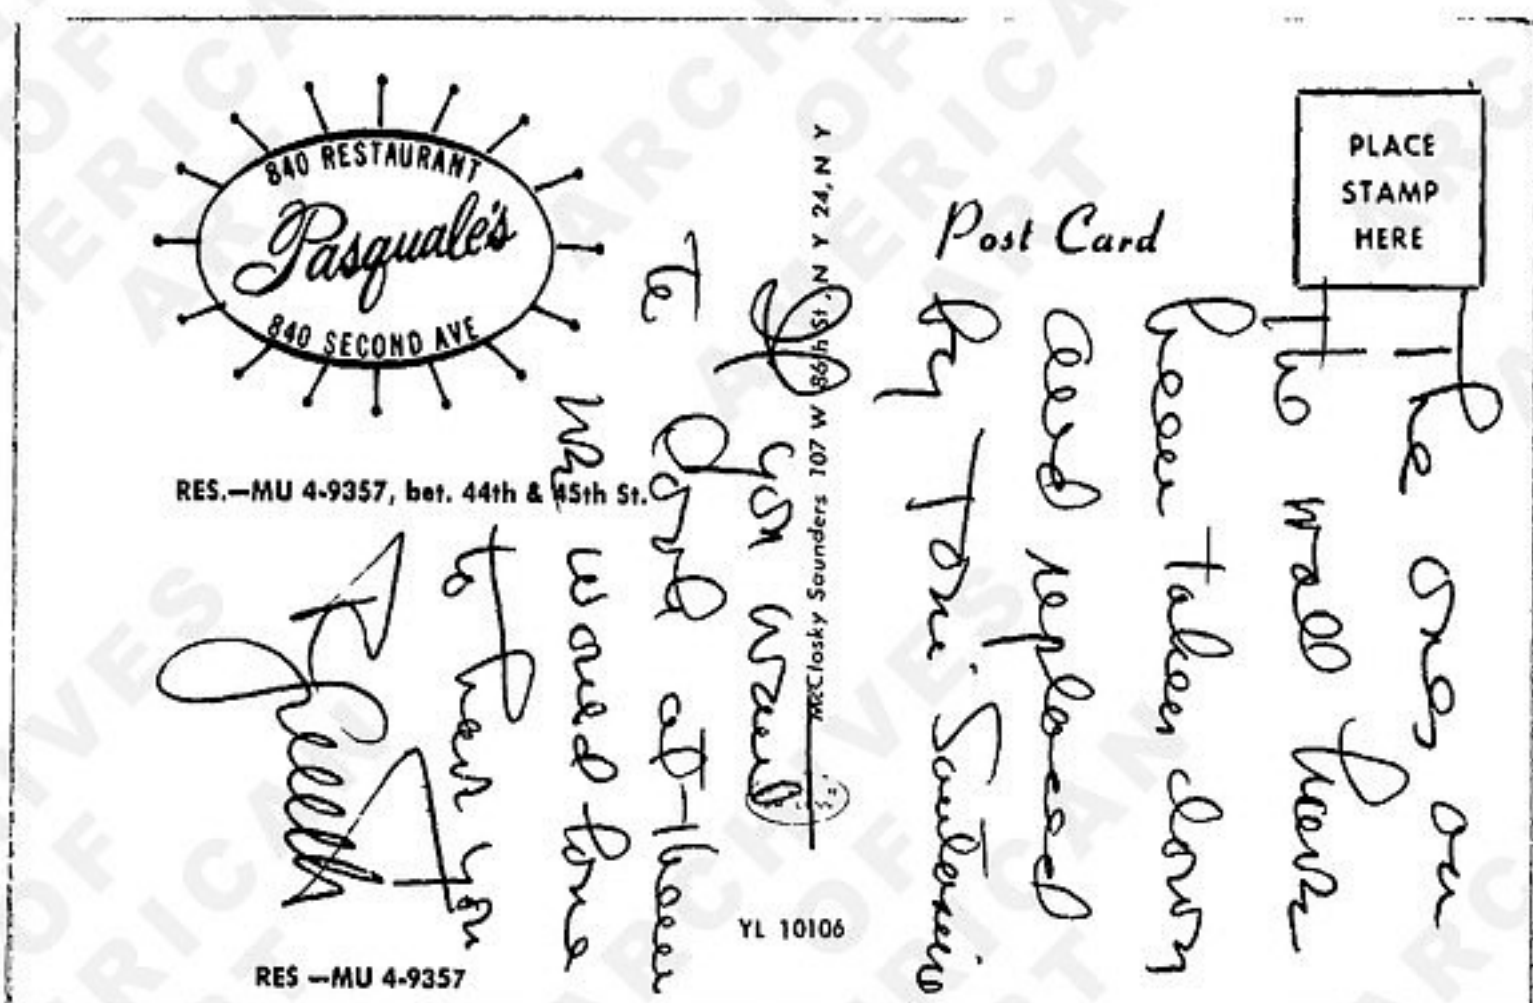 840 RESTAURANT
Pasquale's
840 SECOND AVE
RES.—MU 4-9357, bet. 44th & 45th St.
RES —MU 4-9357
McClosky Saunders 107 W 86th St. N Y 24, N Y
YL 10106
Post Card
PLACE
STAMP
HERE
The ones on
the wall have
been taken down
and replaced
by Toni Santonio
If you want
to look at them
we would love
to have you
ARCHIVES OF
AMERICAN ART